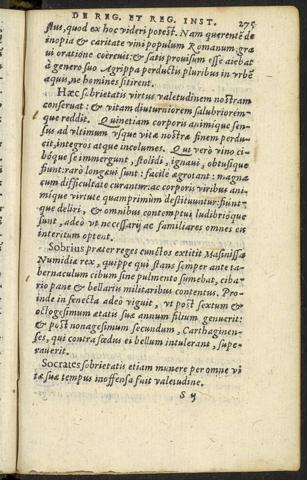 DE REG. ET REG. INST. 275
ctus, quod ex hoc videri potest. Nam querentē de
inopia & caritate vini populum Romanum: gra
ui oratione coërcuit: & satis prouisum esse aiebat
à genero suo Agrippa perductis pluribus in vrbē
aquis, ne homines sitirent.
Hæc sobrietatis virtus valetudinem nostram
conseruat: & vitam diuturniorem salubriorem-
que reddit. Quinetiam corporis animique sen-
sus ad vltimum vsque vitæ nostræ finem perdu-
cit, integros atque incolumes. Qui verò vino ci-
bóque se immergunt, stolidi, ignaui, obtusique
fiunt: rarò longæui sunt: facile ægrotant: magna
cum difficultate curantur: ac corporis viribus ani
mique virtute quamprimùm destituuntur: fiunt-
que deliri, & omnibus contemptui ludibrióque
sunt, adeò vt necessarij ac familiares omnes eis
interitum optent.
Sobrius præter reges cunctos extitit Masinissa
Numidiæ rex, quippe qui stans semper ante ta-
bernaculum cibum sine pulmento sumebat, ciba-
rio pane & bellariis militaribus contentus. Pro-
inde in senecta adeò viguit, vt post sextum &
octogesimum ætatis suæ annum filium genuerit:
& post nonagesimum secundum, Carthaginen-
ses, qui contra fœdus ei bellum intulerant, supe-
rauerit.
Socrates sobrietatis etiam munere per omne vi
tæ suæ tempus inoffensa fuit valetudine.
S ij